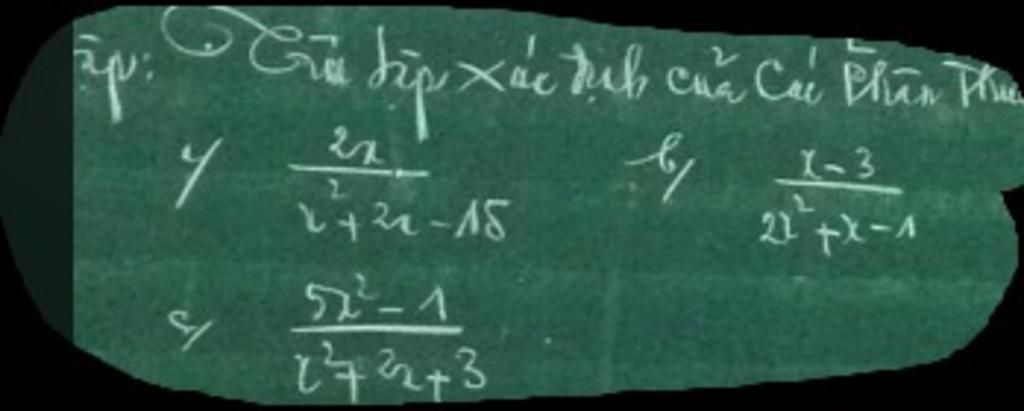 ập: Tìm tập xác định của các phân thức
a/ 2x / (x² + 2x - 15)
b/ (x - 3) / (2x² + x - 1)
c/ (5x² - 1) / (x² + 2x + 3)